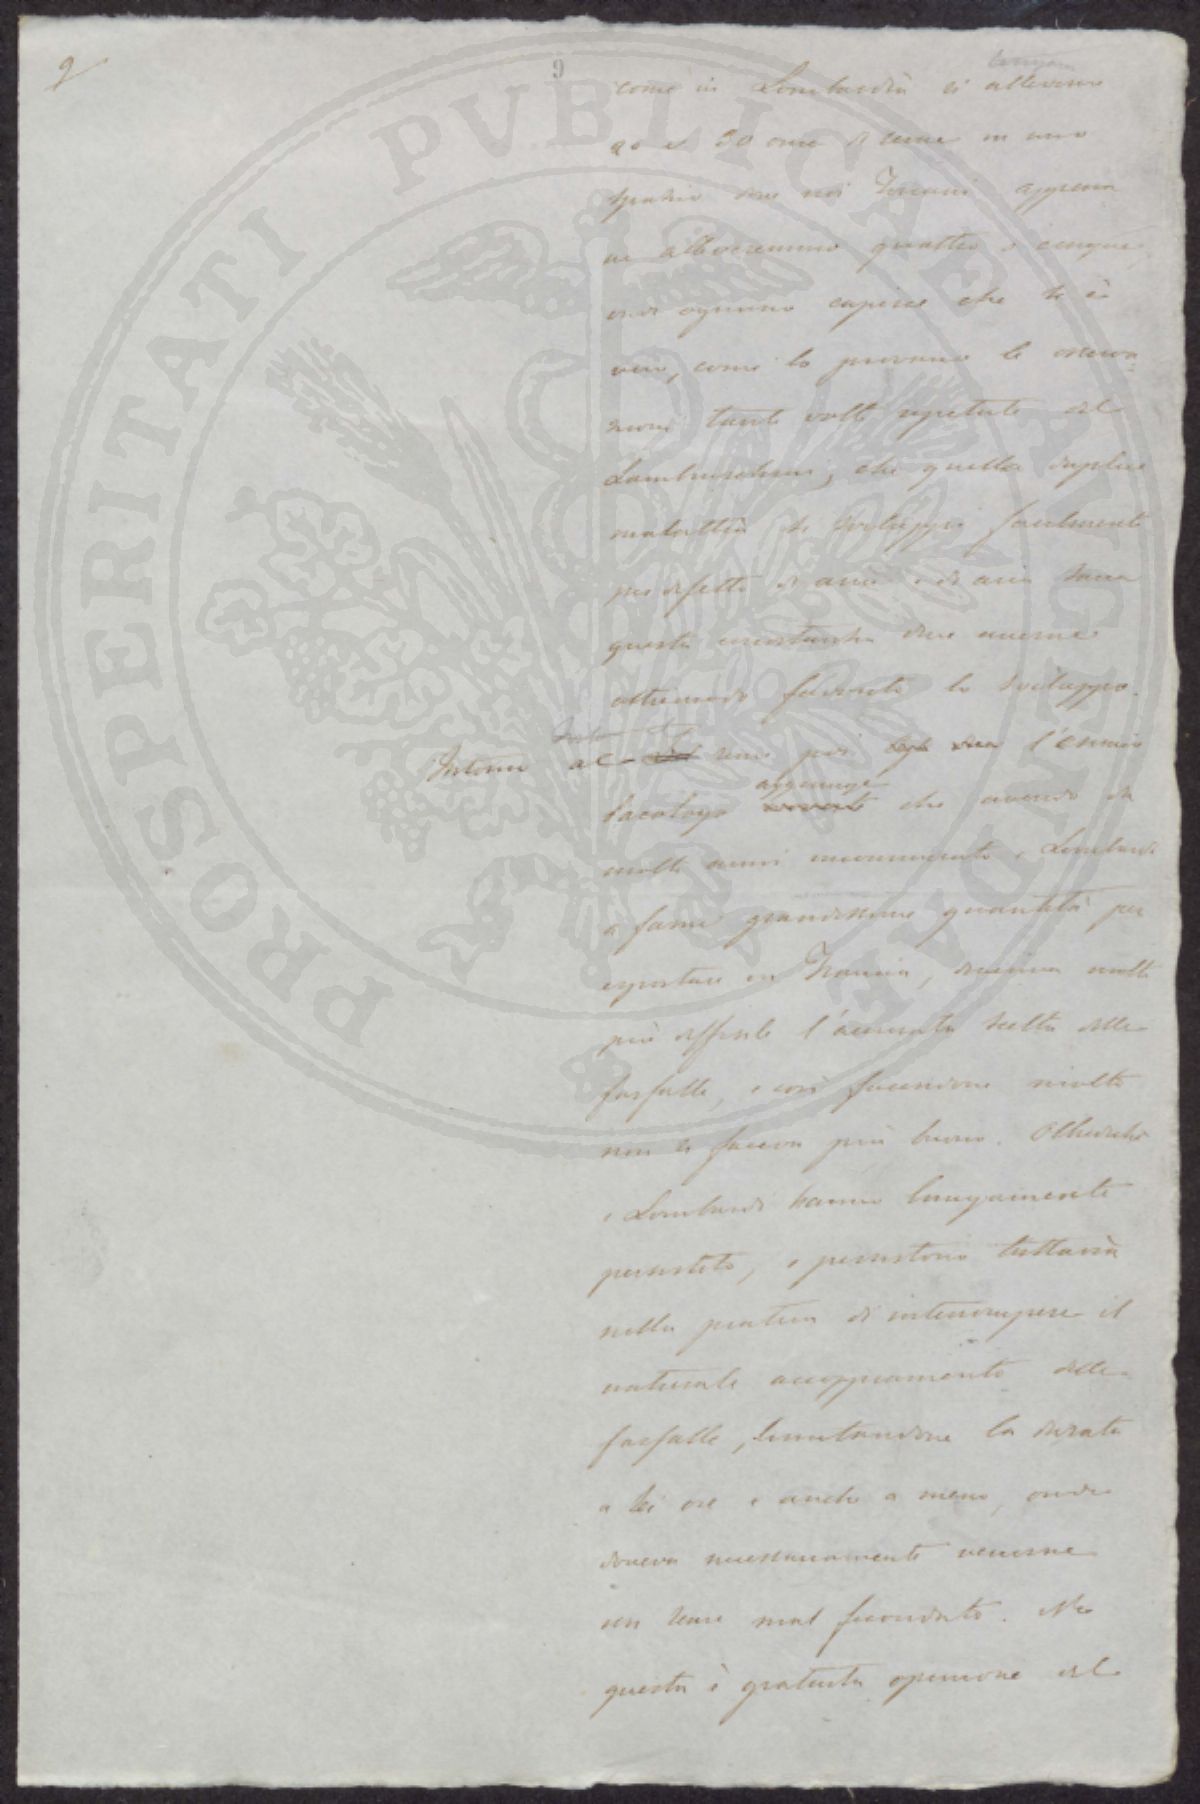 9
9
come in Lombardia si allevano
20 e 30 once di seme in uno
spazio dove noi Toscani appena
ne alleveremmo quattro o cinque,
ondi ognuno capisce che se è
vero, come lo provano le osserva
zioni tante volte ripetute del
Lambruschini, che quella duplice
malattia si sviluppi facilmente
per difetto di aria e di aria sana
questa circostanza deve averne
oltremodo favorito lo sviluppo.
Intorno al seme poi l'esimio
bacologo aggiunge che avendo da
molti anni incominciato i Lombardi
a farne grandissime quantità per
esportare in Francia, diveniva molto
più difficile l'accurata scelta delle
farfalle, e così facendone molto
non si faceva più buono. Oltreché
i Lombardi hanno lungamente
persistito, e persistono tuttavia
nella pratica di interrompere il
naturale accoppiamento delle
farfalle, limitandone la durata
a sei ore e anche a meno, onde
doveva necessariamente venirne
un seme mal fecondato. Ne
questa è gratuita opinione del
PROSPERITATI PVBLICAE AVGENDAE